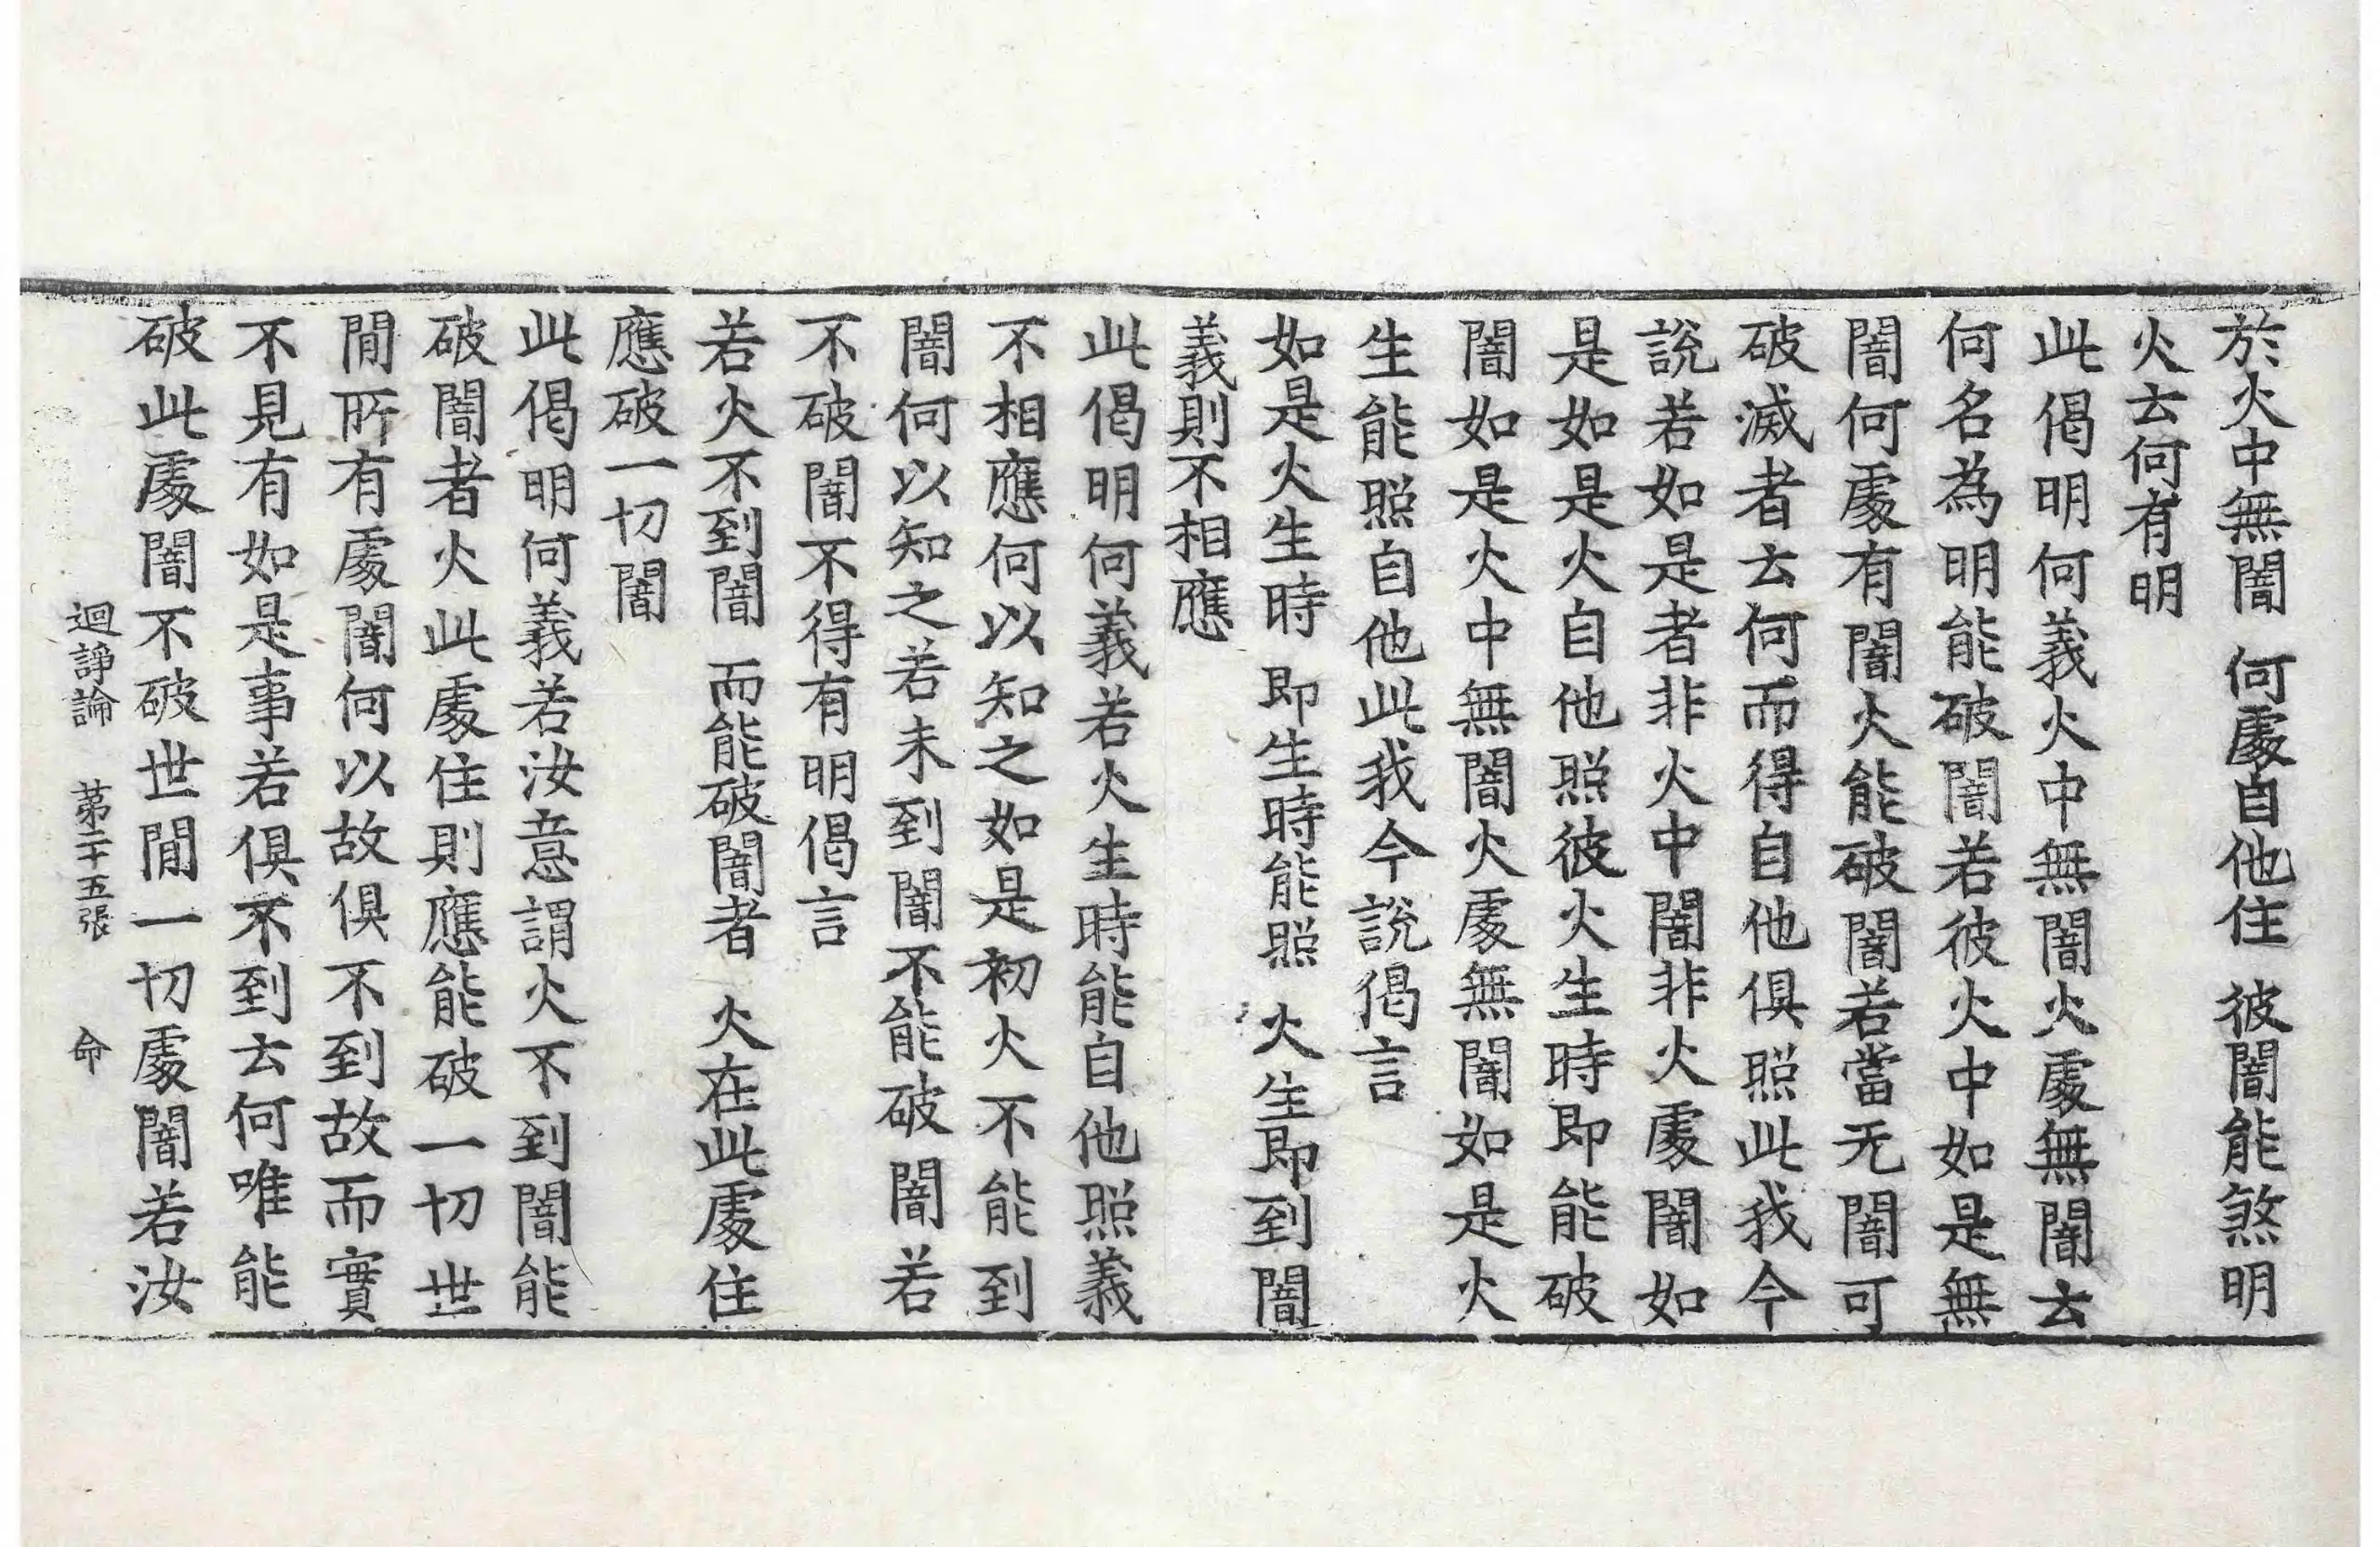 於火中無闇 何處自他住 彼闇能煞明
火云何有明
此偈明何義火中無闇火處無闇云
何名為明能破闇若彼火中如是無
闇何處有闇火能破闇若當无闇可
破滅者云何而得自他俱照此我今
說若如是者非火中闇非火處闇如
是如是火自他照彼火生時即能破
闇如是火中無闇火處無闇如是火
生能照自他此我今說偈言
如是火生時 即生時能照 火生即到闇
義則不相應
此偈明何義若火生時能自他照義
不相應何以知之如是初火不能到
闇何以知之若未到闇不能破闇若
不破闇不得有明偈言
若火不到闇 而能破闇者 火在此處住
應破一切闇
此偈明何義若汝意謂火不到闇能
破闇者火此處住則應能破一切世
間所有處闇何以故俱不到故而實
不見有如是事若俱不到云何唯能
破此處闇不破世間一切處闇若汝
迴諍論 第二十五張 命